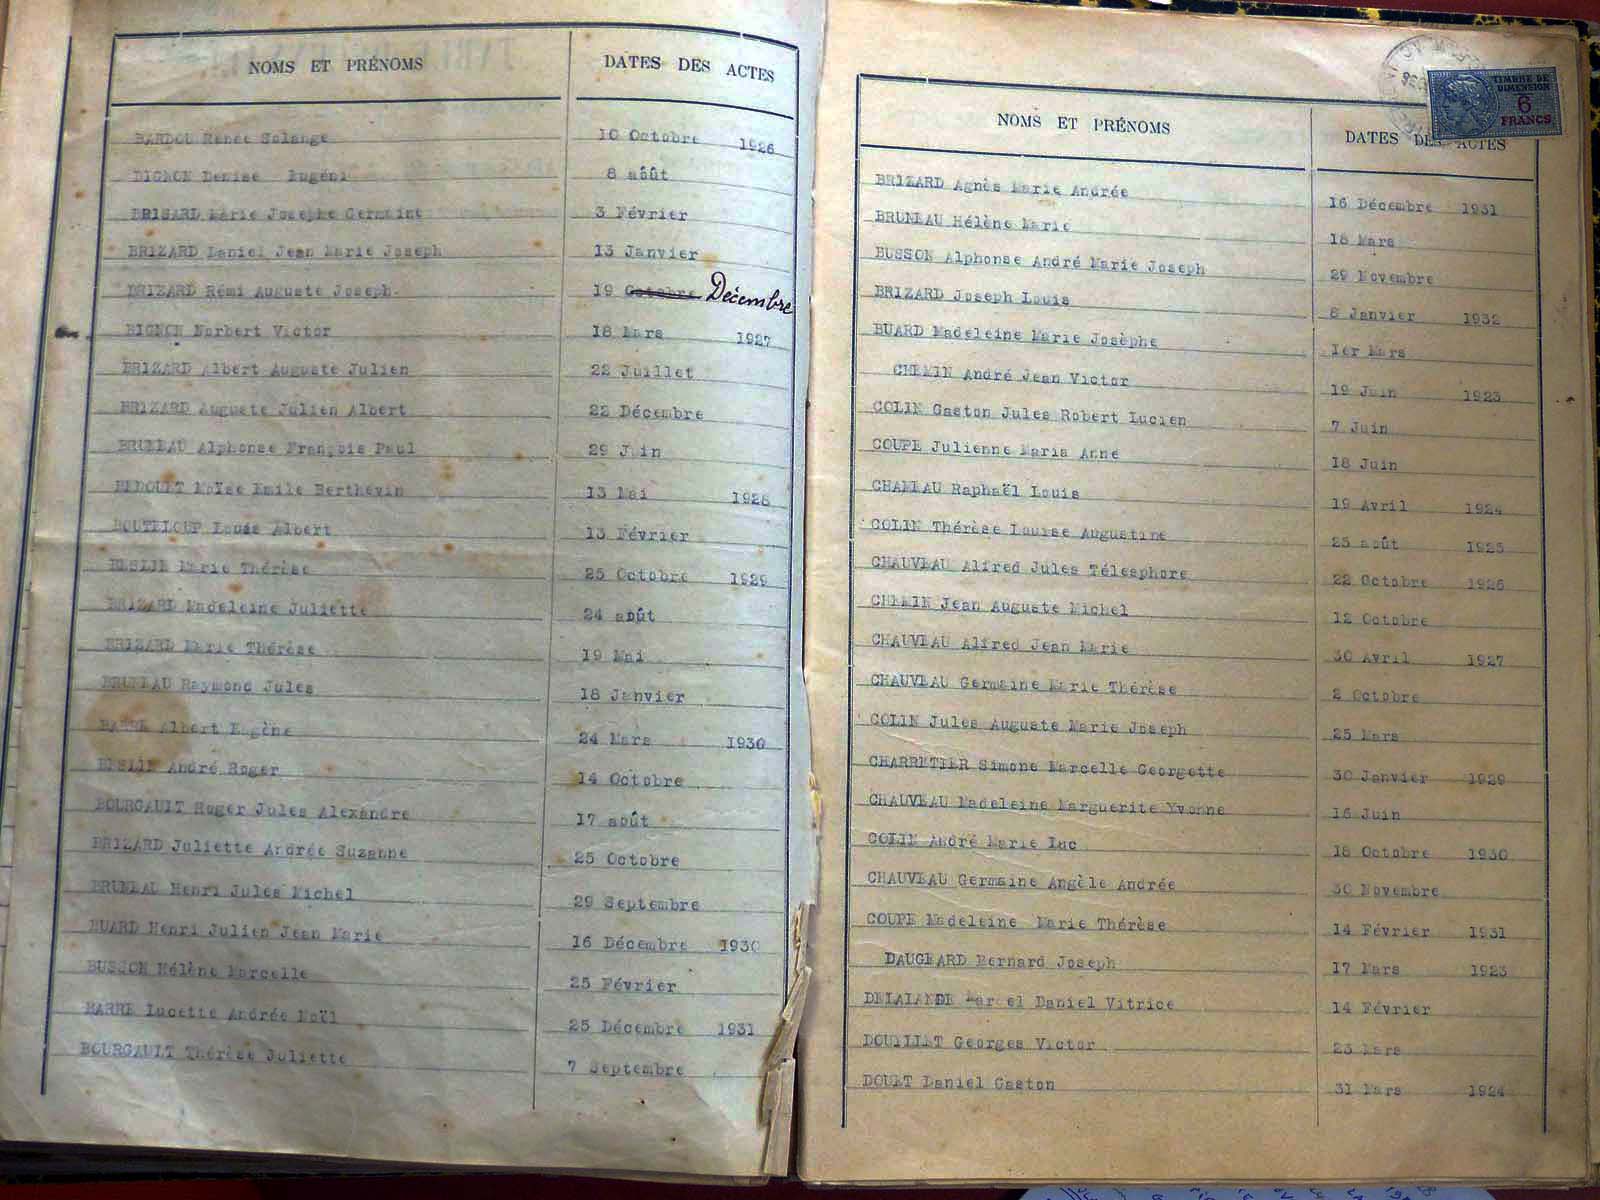 NOMS ET PRÉNOMS DATES DES ACTES
BARDOU Renée Solange 10 Octobre 1926
BIGNON Denise Eugéni 8 août
BRISARD Marie Josephe Germaine 3 Février
BRIZARD Daniel Jean Marie Joseph 13 Janvier
BRIZARD Rémi Auguste Joseph 19 Octobre Décembre
BIGNON Norbert Victor 18 Mars 1927
BRIZARD Albert Auguste Julien 22 Juillet
BRIZARD Auguste Julien Albert 22 Décembre
BRUNEAU Alphonse François Paul 29 Juin
BEDOUET Moïse Emile Berthevin 13 Mai 1928
BOUTELOUP Louis Albert 13 Février
BESLIE Marie Thérèse 25 Octobre 1929
BRIZARD Madeleine Juliette 24 août
BRIZARD Marie Thérèse 19 Mai
BRUNEAU Raymond Jules 18 Janvier
BARRE Albert Eugène 24 Mars 1930
André Roger 14 Octobre
BOURGAULT Roger Jules Alexandre 17 août
BRIZARD Juliette Andrée Suzanne 25 Octobre
BRUNEAU Henri Jules Michel 29 Septembre
BUARD Henri Julien Jean Marie 16 Décembre 1930
BUSSON Hélène Marcelle 25 Février
BARRE Lucette Andrée Noël 25 Décembre 1931
BOURGAULT Thérèse Juliette 7 Septembre
TIMBRE DE
DIMENSION
6
FRANCS
NOMS ET PRÉNOMS DATES DES ACTES
BRIZARD Agnès Marie Andrée 16 Décembre 1931
BRUNEAU Hélène Marie 18 Mars
BUSSON Alphonse André Marie Joseph 29 Novembre
BRIZARD Joseph Louis 8 Janvier 1932
BUARD Madeleine Marie Josèphe 1er Mars
CHEMIN André Jean Victor 19 Juin 1923
COLIN Gaston Jules Robert Lucien 7 Juin
COUPE Julienne Maria Anne 18 Juin
CHANEAU Raphaël Louis 19 Avril 1924
COLIN Thérèse Louise Augustine 25 août 1925
CHAUVEAU Alfred Jules Télesphore 22 Octobre 1926
CHEMIN Jean Auguste Michel 12 Octobre
CHAUVEAU Alfred Jean Marie 30 Avril 1927
CHAUVEAU Germaine Marie Thérèse 2 Octobre
COLIN Jules Auguste Marie Joseph 25 Mars
CHARRETIER Simone Marcelle Georgette 30 Janvier 1929
CHAUVEAU Madeleine Marguerite Yvonne 16 Juin
COLIN André Marie Luc 18 Octobre 1930
CHAUVEAU Germaine Angèle Andrée 30 Novembre
COUPE Madeleine Marie Thérèse 14 Février 1931
DAUGEARD Bernard Joseph 17 Mars 1923
DELALANDE Marcel Daniel Vitrice 14 Février
DOUILLET Georges Victor 23 Mars
DOUET Daniel Gaston 31 Mars 1924